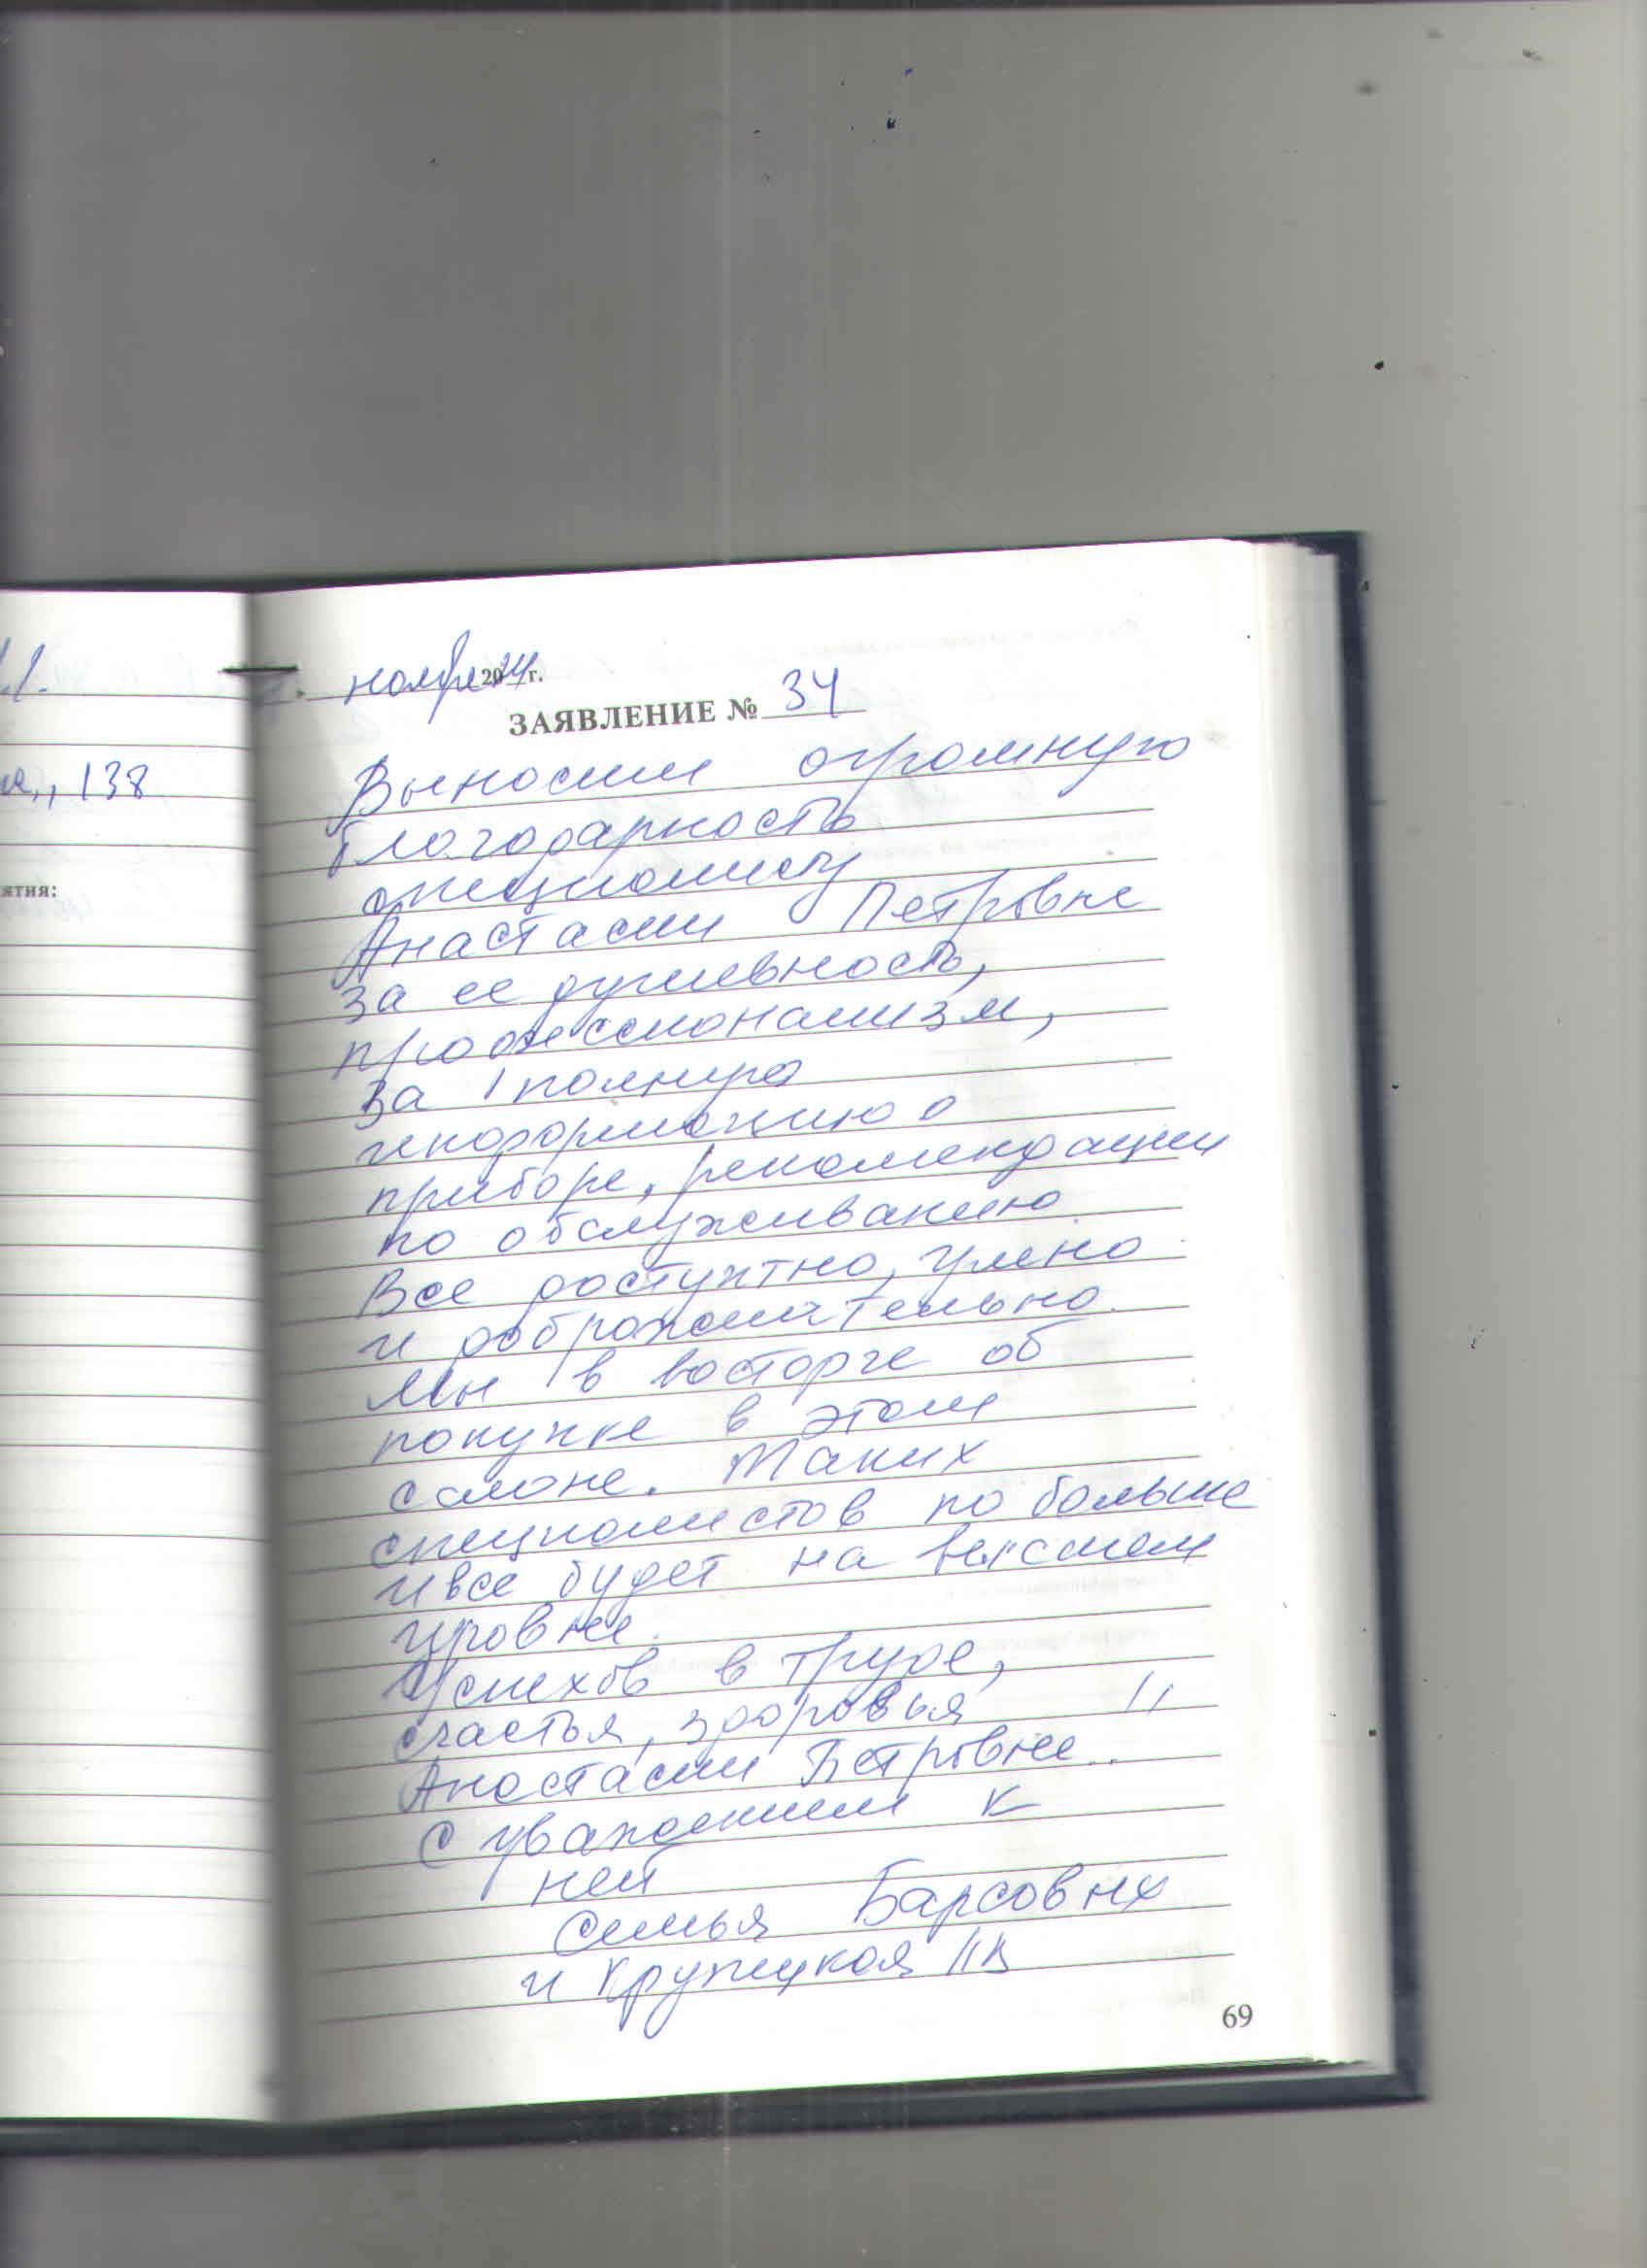 1.
138
ятия:
ноября 2024 г.
ЗАЯВЛЕНИЕ № 34
Выносим огромную
благодарность
специалисту
Анастасии Петровне
за ее душевность,
професссионализм,
за полную
информацию о
приборе, рекомендации
по обслуживанию
Все доступно, умно
и доброжелательно.
Мы в восторге об
покупке в этом
салоне. Таких
специалистов по больше
и все будет на высшем
уровне.
Успехов в труде,
счастья, здоровья
Анастасии Петровне..
С уважением к
ней
Семья Барсовых
и Кружицкая
69